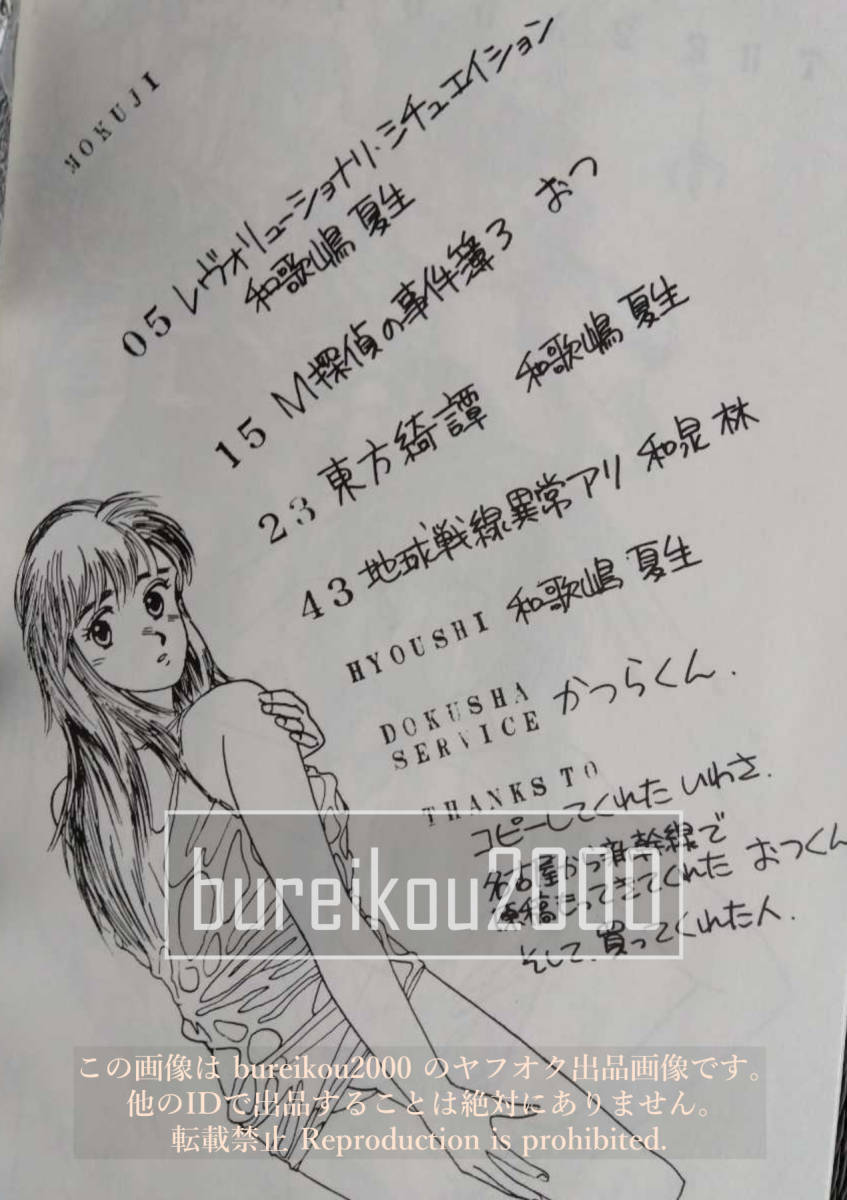 MOKUJI
05 レヴォリューショナリ・シチュエイション
和歌嶋 夏生
15 M探偵の事件簿3 おつ
23 東方綺譚 和歌嶋 夏生
43 地球戦線異常アリ 和泉 林
HYOUSHI 和歌嶋 夏生
DOKUSHA
SERVICE かつらくん.
THANKS TO
コピーしてくれた いわさ.
名古屋から新幹線で
原稿もってきてくれた おつくん
そして、買ってくれた人.
bureikou2000
この画像は bureikou2000 のヤフオク出品画像です。
他のIDで出品することは絶対にありません。
転載禁止 Reproduction is prohibited.